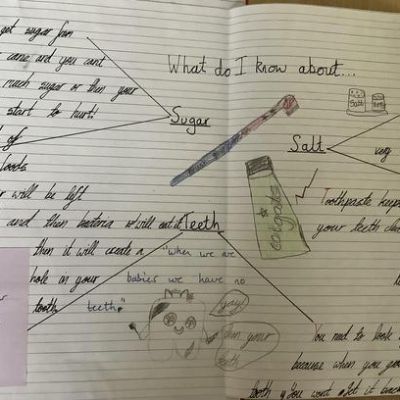 What do I know about...
get sugar from
cane and you cant
much sugar or then your
start to hurt!
Sugar
of
foods
will be left
and then bacteria will eat it
then it will create a
hole in your
tooth
Teeth
"when we are
babies we have no
teeth."
Salt
Salt
very
colgate
Toothpaste keeps
your teeth
yay!
your
teeth
You need to look
because when you
tooth You wont get it back